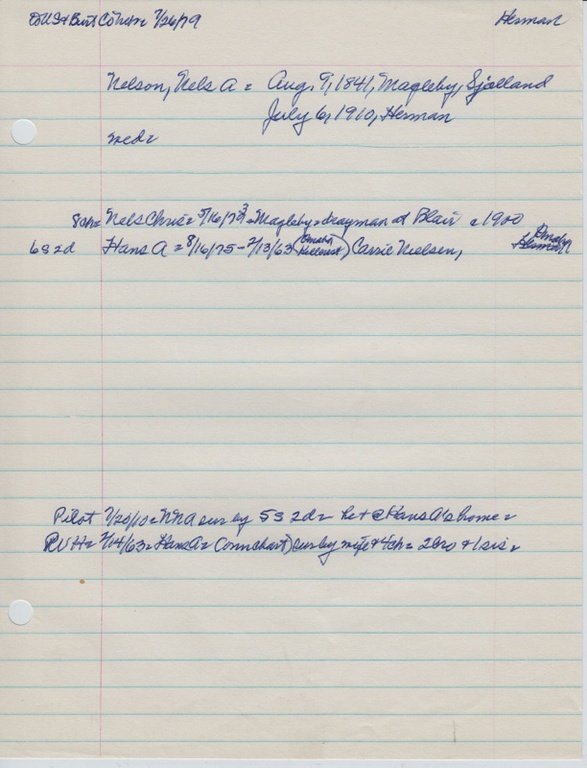 Co 7/26/79 Herman
Nelson, Nels A = Aug. 9, 1841, Magleby, Sjolland
July 6, 1910, Herman
med=
8ch= Nels Chris = 5/16/73 = Magleby = drayman at Blair c 1900
6s 2d Hans A = 8/16/75 - 2/13/63 (Omaha Hillcrest) Carrie Nielsen, Omaha Herman
Pilot 7/20/10 = NNA sur by 5s 2d = @ Hans A's home =
2/14/63 = Hans A = sur by wife & 4ch = 2bro & 1sis =